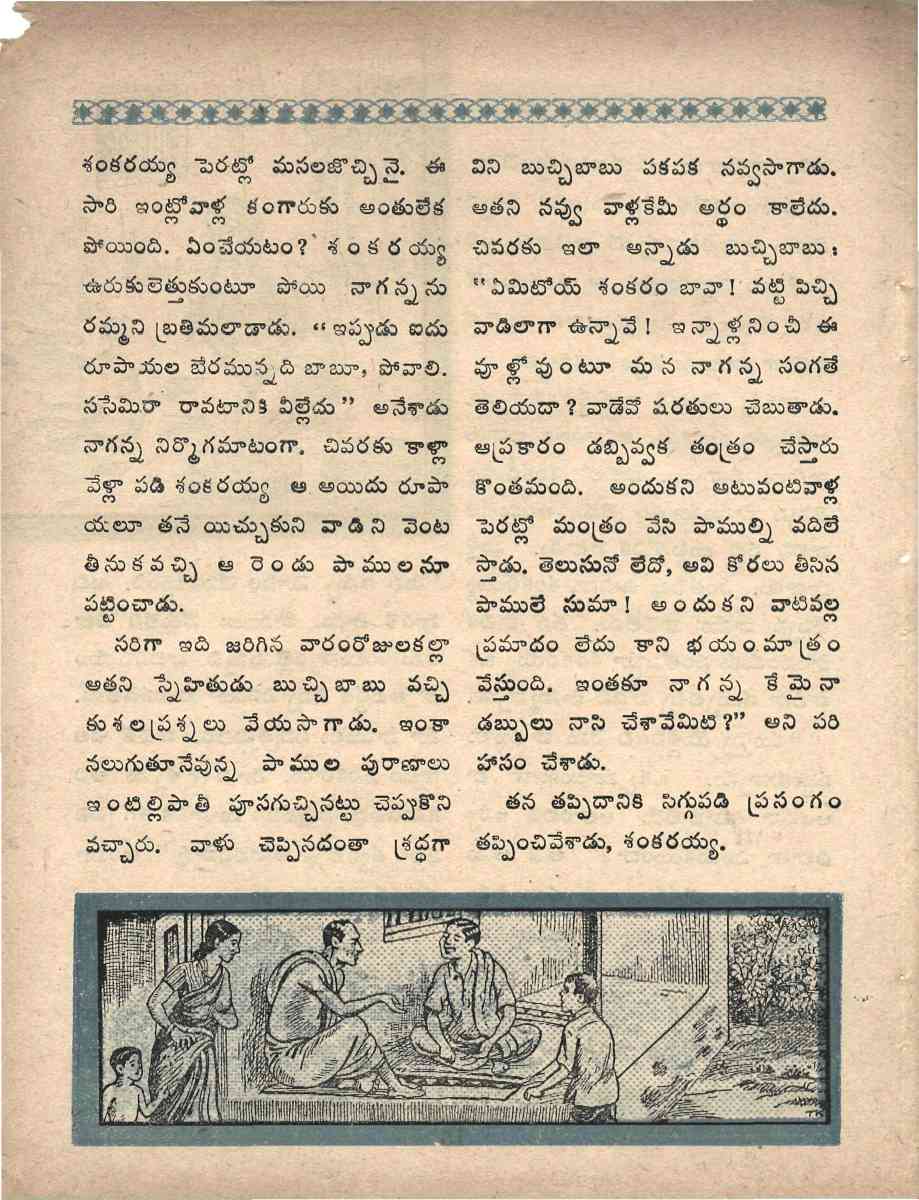 శంకరయ్య పెరట్లో మసలజొచ్చినై. ఈ
సారి ఇంట్లోవాళ్ల కంగారుకు అంతులేక
పోయింది. ఏంచేయటం? శంకరయ్య
ఉరుకులెత్తుకుంటూ పోయి నాగన్నను
రమ్మని బ్రతిమలాడాడు. “ఇప్పుడు ఐదు
రూపాయల బేరమున్నది బాబూ, పోవాలి.
ససేమిరా రావటానికి వీల్లేదు” అనేశాడు
నాగన్న నిర్మొగమాటంగా. చివరకు కాళ్లా
వేళ్లా పడి శంకరయ్య ఆ అయిదు రూపా
యలూ తనే యిచ్చుకుని వాడిని వెంట
తీసుకవచ్చి ఆ రెండు పాములనూ
పట్టించాడు.
సరిగా ఇది జరిగిన వారంరోజులకల్లా
అతని స్నేహితుడు బుచ్చిబాబు వచ్చి
కుశలప్రశ్నలు వేయసాగాడు. ఇంకా
నలుగుతూనేవున్న పాముల పురాణాలు
ఇంటిల్లిపాతీ పూసగుచ్చినట్టు చెప్పుకొని
వచ్చారు. వాళు చెప్పినదంతా శ్రద్ధగా
విని బుచ్చిబాబు పకపక నవ్వసాగాడు.
అతని నవ్వు వాళ్లకేమీ అర్థం కాలేదు.
చివరకు ఇలా అన్నాడు బుచ్చిబాబు :
“ఏమిటోయ్ శంకరం బావా! వట్టి పిచ్చి
వాడిలాగా ఉన్నావే! ఇన్నాళ్లనించీ ఈ
వూళ్లోవుంటూ మన నాగన్న సంగతే
తెలియదా? వాడేవో షరతులు చెబుతాడు.
ఆప్రకారం డబ్బివ్వక తంత్రం చేస్తారు
కొంతమంది. అందుకని అటువంటివాళ్ల
పెరట్లో మంత్రం వేసి పాముల్ని వదిలే
స్తాడు. తెలుసునో లేదో, అవి కోరలు తీసిన
పాములే సుమా! అందుకని వాటివల్ల
ప్రమాదం లేదు కాని భయంమాత్రం
వేస్తుంది. ఇంతకూ నాగన్న కేమైనా
డబ్బులు నాసి చేశావేమిటి?” అని పరి
హాసం చేశాడు.
తన తప్పిదానికి సిగ్గుపడి ప్రసంగం
తప్పించివేశాడు, శంకరయ్య.